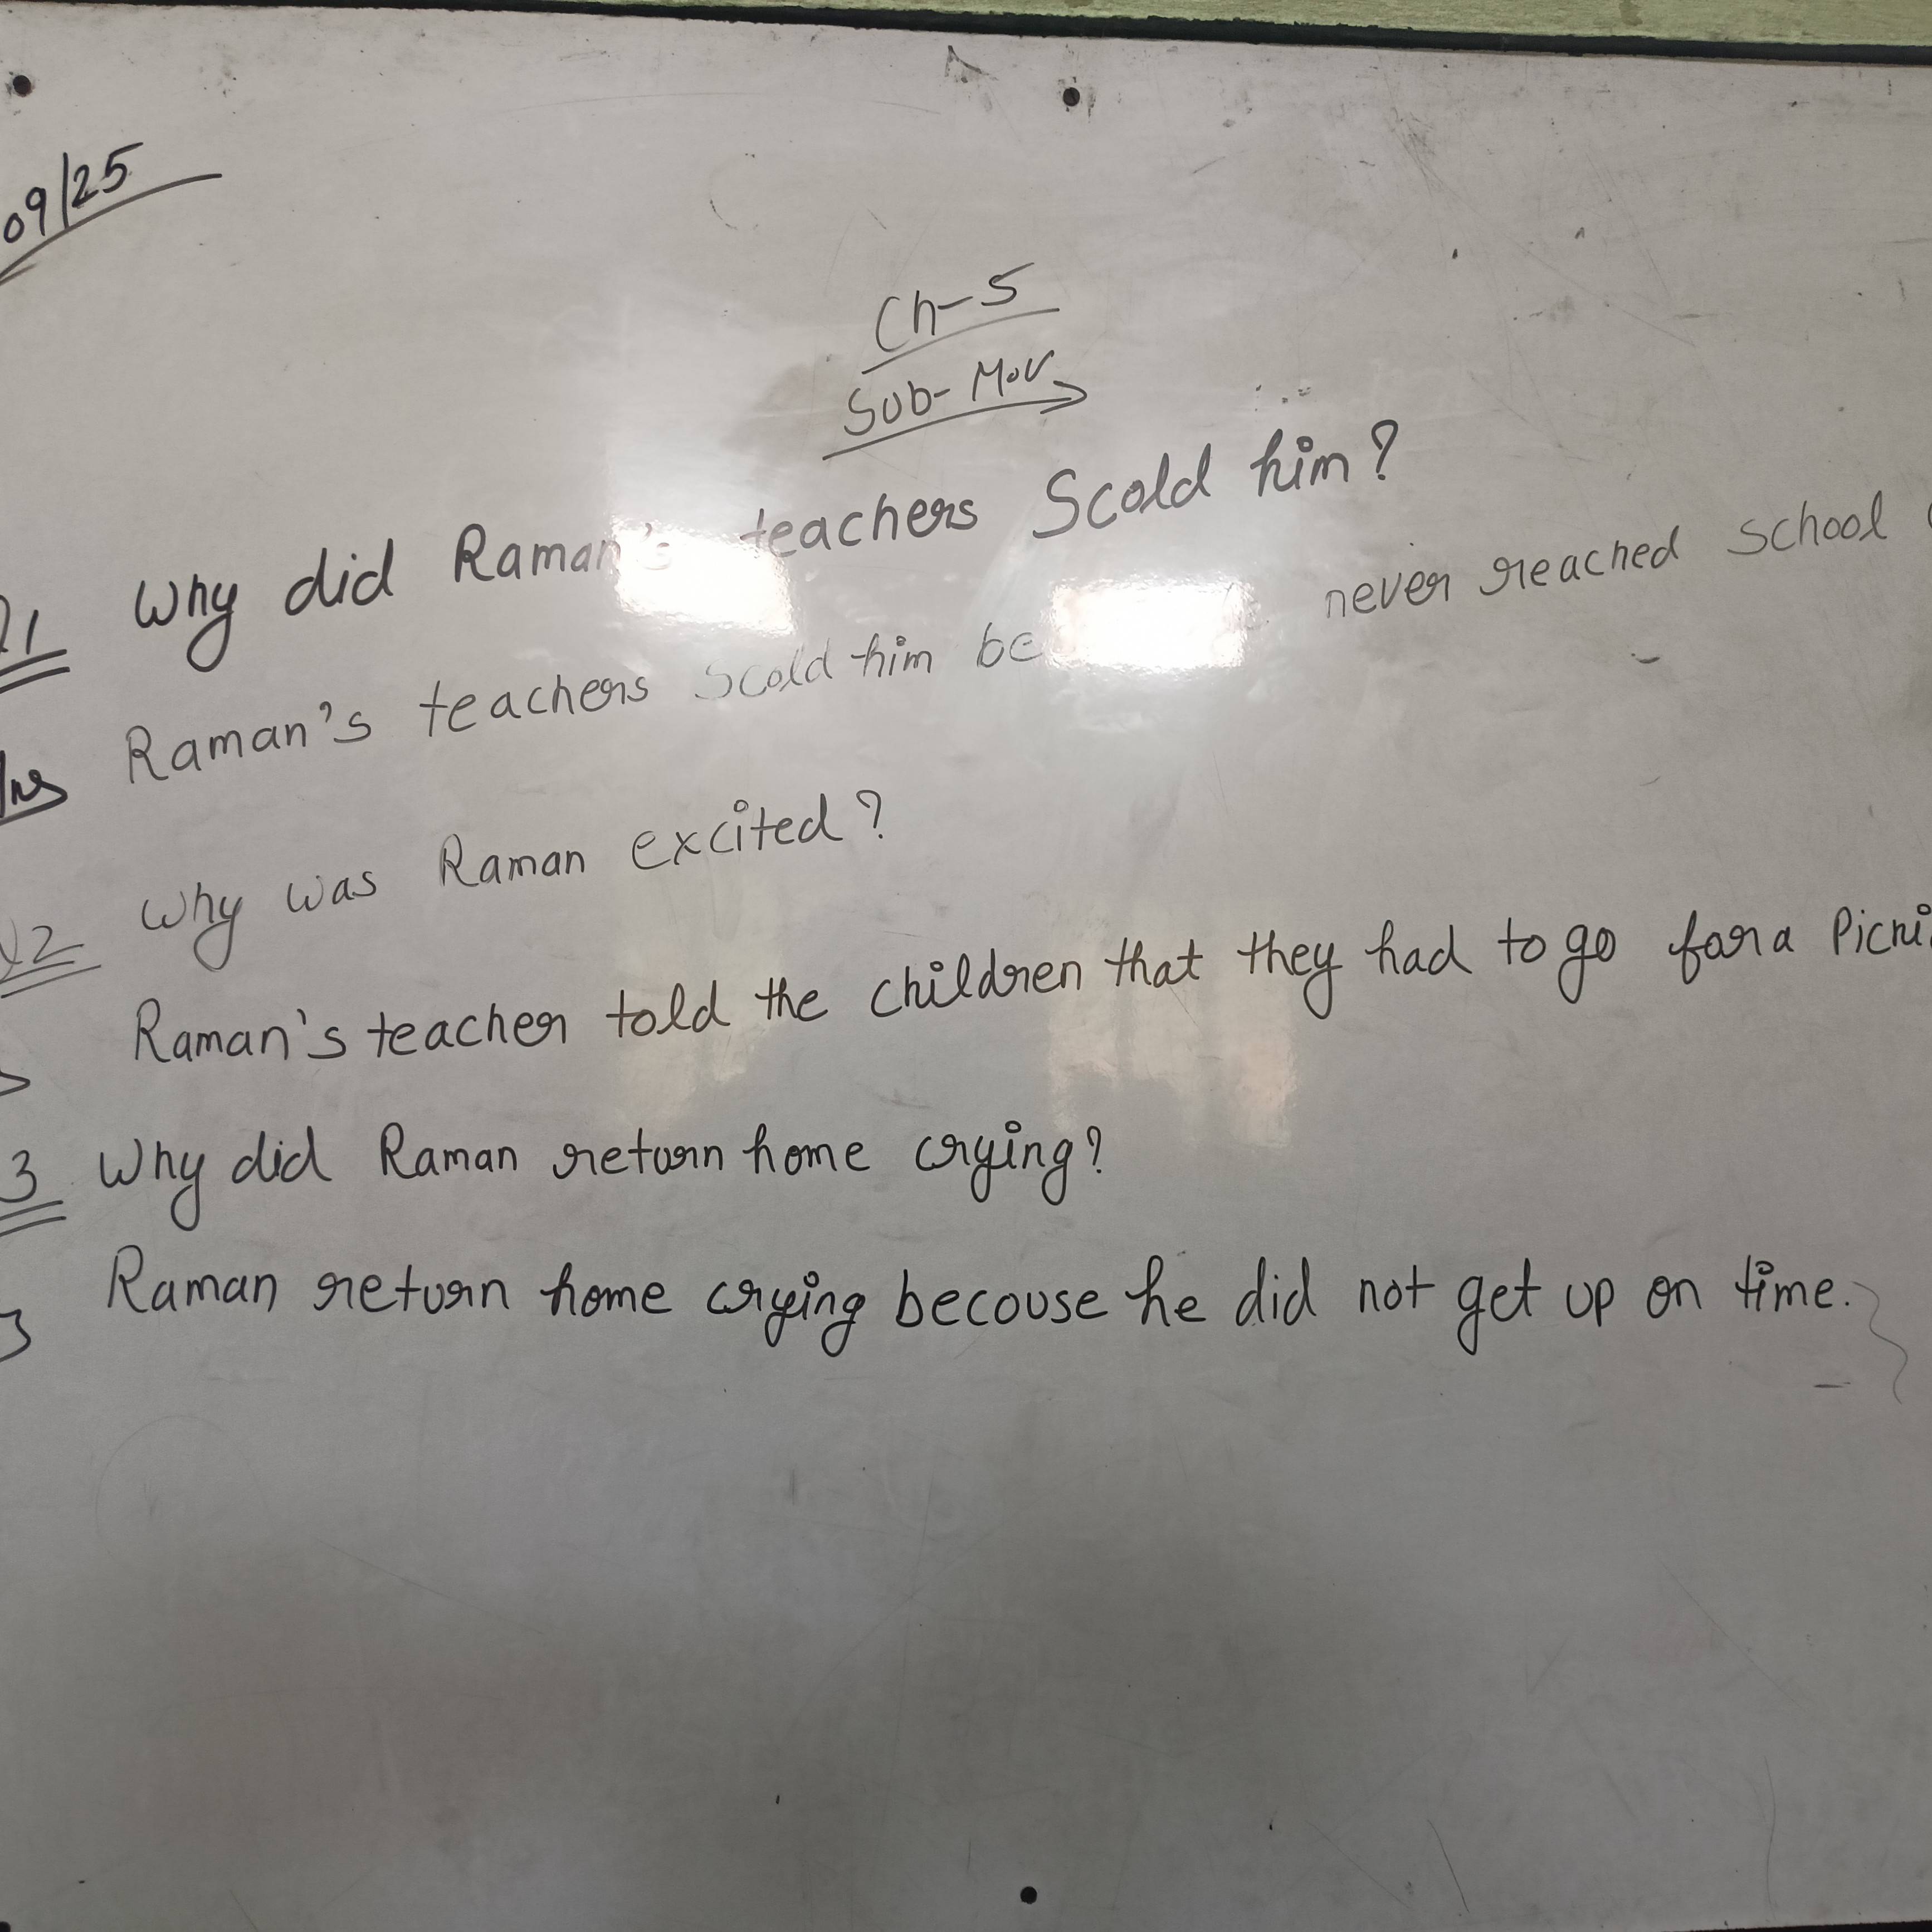 09/25
Ch-5
Sub-M.V
Q1 Why did Raman's teachers Scold him?
Ans Raman's teachers Scold him never reached School
Q2 Why was Raman excited?
Raman's teacher told the children that they had to go for a
3 Why did Raman return home crying?
Raman return home crying becouse he did not get up on time.